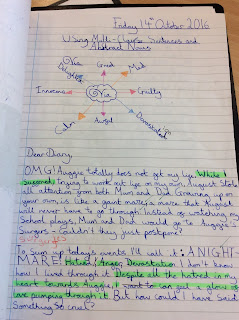 Friday 14th October 2016
Using Multi-Clause Sentences and
Abstract Nouns
Via
Delighted
Greed
Mad
Innocence
Via
Guilty
Calm
Awful
Devastated
Dear Diary,
OMG! Auggie totally does not get my life. While I
Summer trying to work out life on my own, August Stole
all attention from both Mum and Dad. Growing up on
your own, is like a giant maze; a maze that August
will never have to go through. Instead of watching my
School plays, Mum and Dad would go to Auggie's
Surgerys - Couldn't they just postpone?
To Sum up today's events I'll call it: A NIGHT-
MARE! Hatred! Anger, Devastation! I don't know
how I lived through it. Despite all the hatred in my
heart towards Auggie, I want to can feel a glow of
love pumping through it. But how could I have Said
Something So cruel?